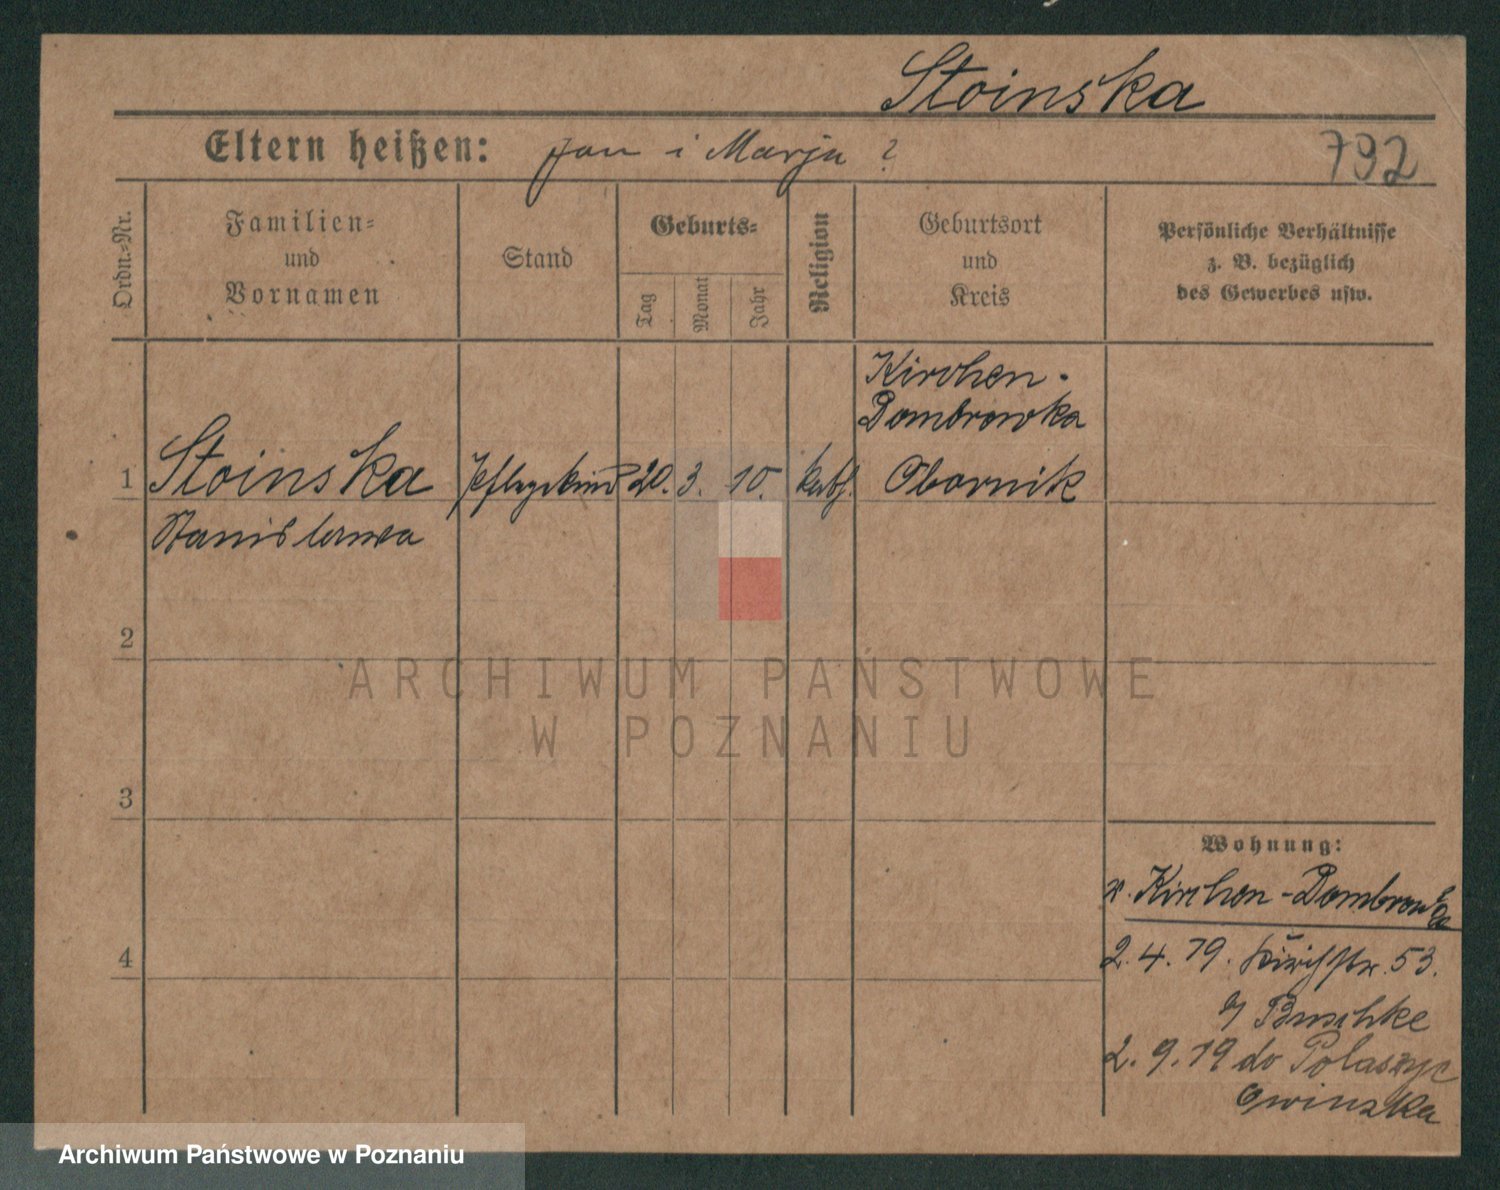 Stoinska
Eltern heißen: Jan i Marja ?
792
Ordn.-Nr.
Familien- und Vornamen
Stand
Geburts-
Tag
Monat
Jahr
Religion
Geburtsort und Kreis
Persönliche Verhältnisse
z. B. bezüglich
des Gewerbes usw.
Kirchen-
Dombrowka
1 Stoinska Pflegekind 20. 3. 10. kath. Obornik
Stanislawa
2
ARCHIWUM PAŃSTWOWE
W POZNANIU
3
Wohnung:
v. Kirchen-Dombrowka
4
2. 4. 19. 53.
Buschke
2. 9. 19 do
Archiwum Państwowe w Poznaniu